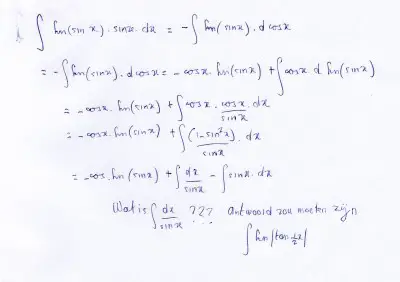 ∫ ln(sin x) · sinx · dx = - ∫ ln(sinx) · d cosx
= - ∫ ln(sinx) · d cosx = - cosx · ln(sinx) + ∫ cosx d ln(sinx)
= - cosx · ln(sinx) + ∫ cosx · cosx/sinx · dx
= - cosx · ln(sinx) + ∫ (1-sin²x)/sinx · dx
= - cos · ln(sinx) + ∫ dx/sinx - ∫ sinx · dx
Wat is ∫ dx/sinx ??? Antwoord zou moeten zijn
∫ ln|tan ½x|